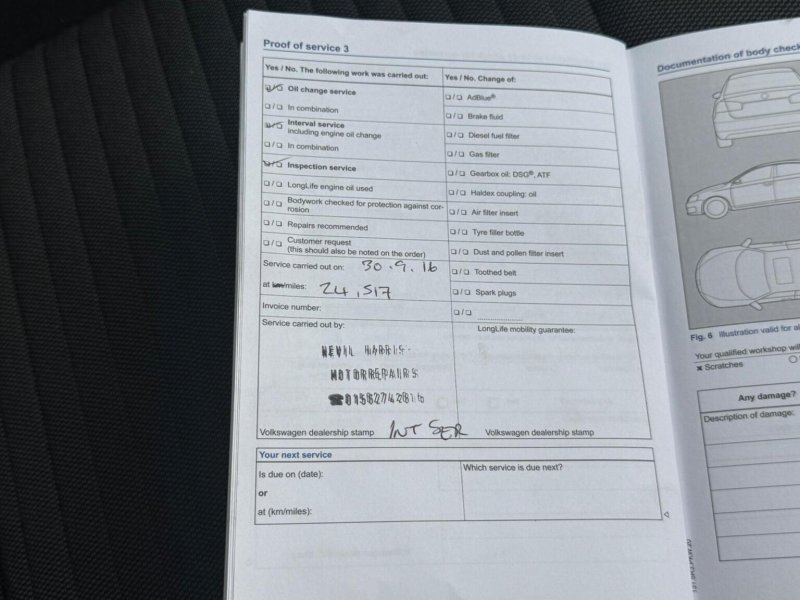 Proof of service 3
Yes / No. The following work was carried out:
Yes / No. Change of:
Oil change service
In combination
Interval service
including engine oil change
In combination
Inspection service
LongLife engine oil used
Bodywork checked for protection against cor-
rosion
Repairs recommended
Customer request
(this should also be noted on the order)
AdBlue®
Brake fluid
Diesel fuel filter
Gas filter
Gearbox oil: DSG®, ATF
Haldex coupling: oil
Air filter insert
Tyre filler bottle
Dust and pollen filter insert
Toothed belt
Spark plugs
Service carried out on: 30.9.16
at km/miles: 24,517
Invoice number:
Service carried out by:
NEVIL HARRIS
MOTORREPAIRS
☎01582742816
Volkswagen dealership stamp INT SER
LongLife mobility guarantee:
Volkswagen dealership stamp
Your next service
Is due on (date):
or
at (km/miles):
Which service is due next?
Documentation of body check
Fig. 6 Illustration valid for al
Your qualified workshop will
Scratches
Any damage?
Description of damage: